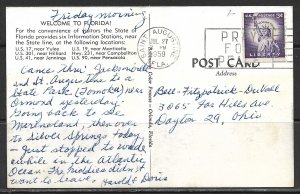 Friday morning
WELCOME TO FLORIDA!
For the convenience of visitors the State of
Florida provides six Information Stations, near
the State line, at the following locations:
U.S. 17, near Yulee U.S. 19, near Monticello
U.S. 301, near Hilliard Hwy. 231, near Campbellton
U.S. 41, near Jennings U.S. 90, near Pensacola
Came thru Jacksonville
and St. Augustine to a
State Park (Tomoka) near
Ormond yesterday.
Going back to see
Marineland, then over
to Silver Springs today
Just stopped to wade
awhile in the Atlantic
Ocean. The kiddies didn't
want to leave.
Harold & Doris
ST. AUGUSTINE
1959
FLA.
PR
FO
POST CARD
Address
Bell-Fitzpatrick-DeWall
3065 Far Hills Ave.
Dayton 29, Ohio